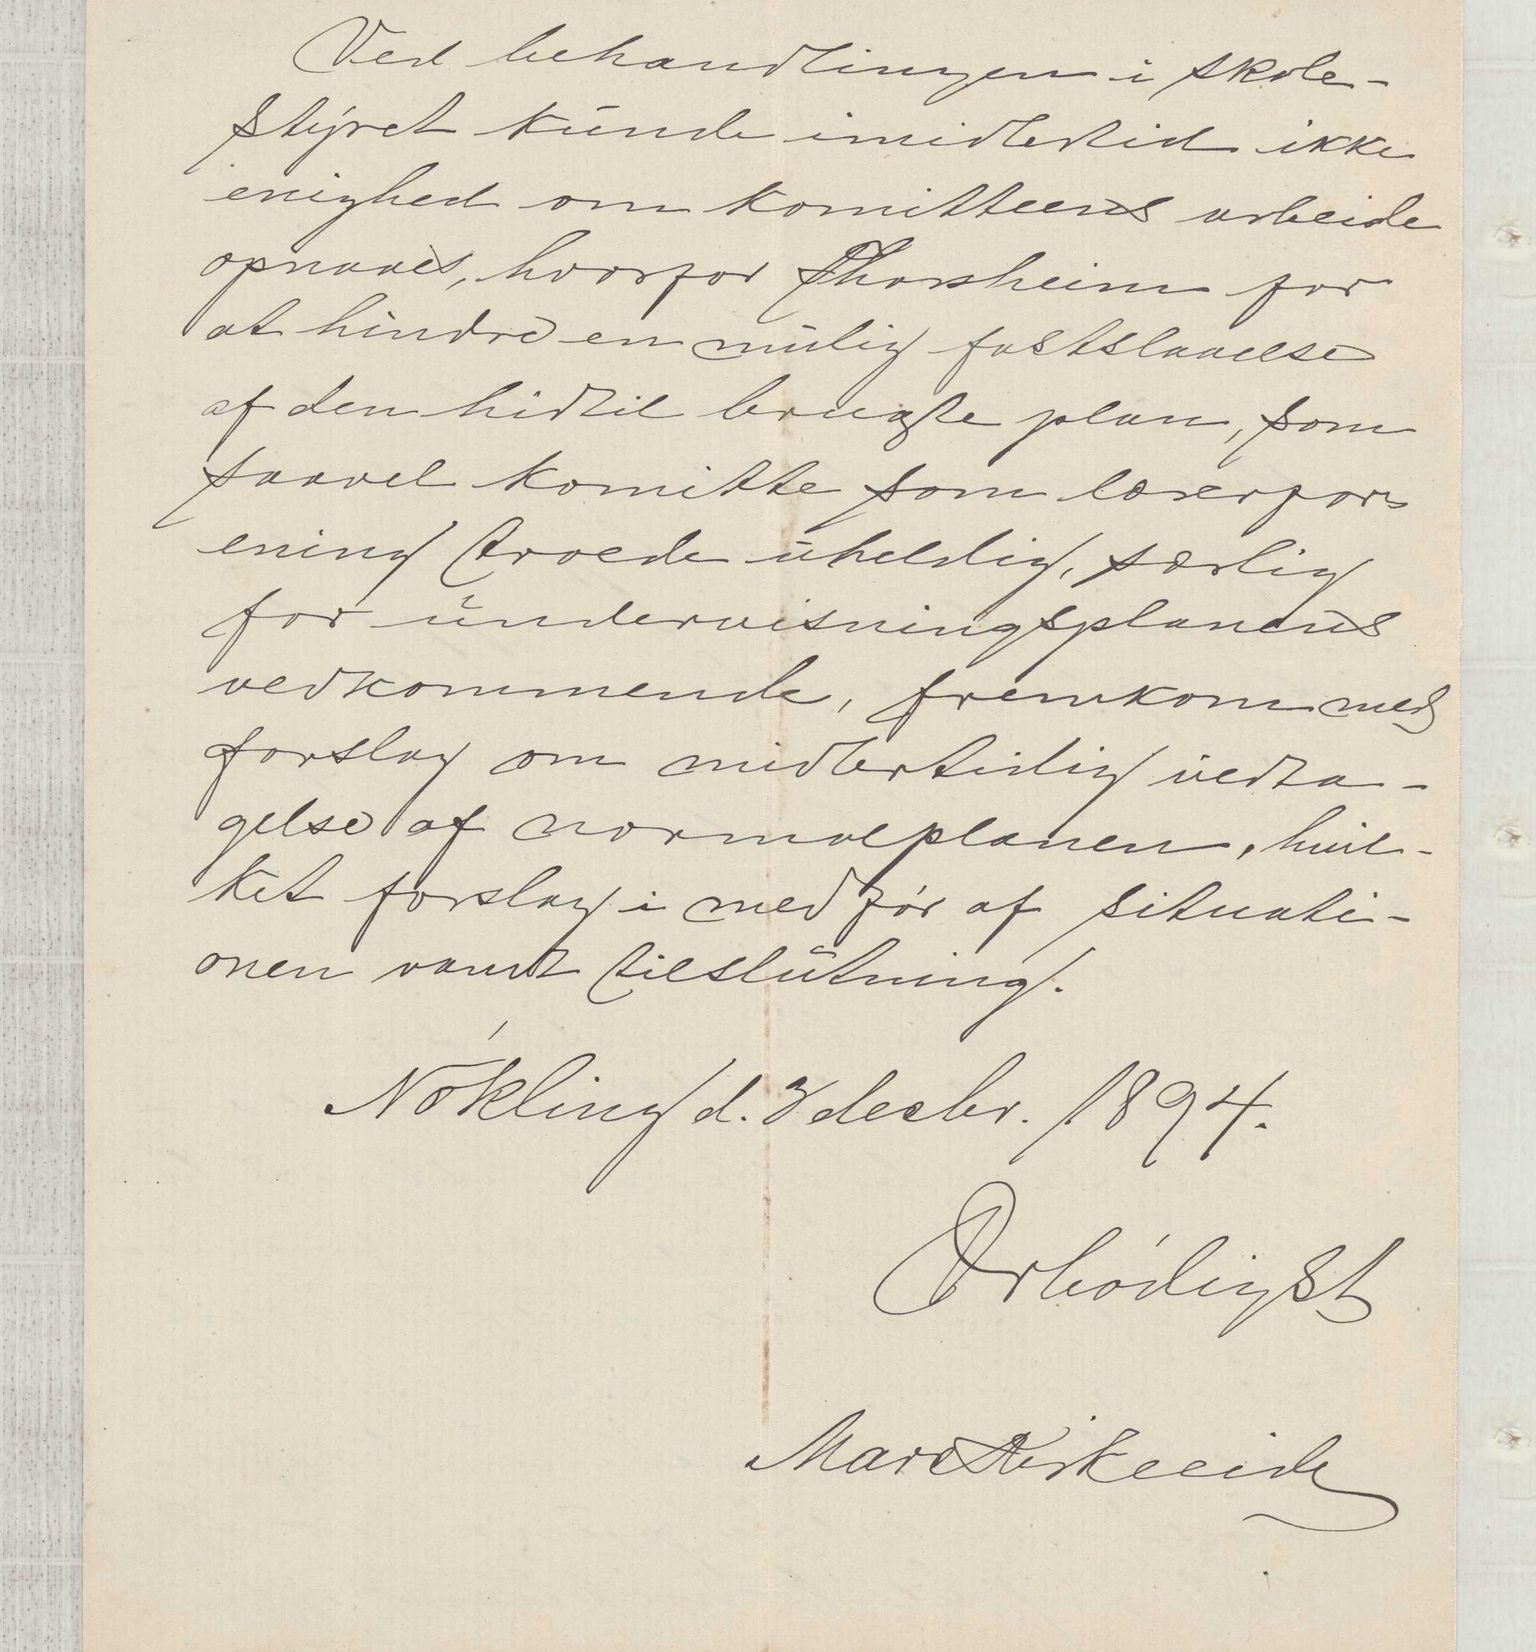 Ved behandlingen i skole-
styret kunde imidlertid ikke
enighed om komitteens arbeide
opnaaes, hvorfor Thorsheim for
at hindre en mulig fastslaaelse
af den hidtil brugte plan, som
saavel komitte som lærerfor
ening troede uheldig, særlig
for undervisningsplanens
vedkommende, fremkom med
forslag om midlertidig vedta-
gelse af normalplanen, hvil-
ket forslag i medfør af situati-
onen vandt tilslutning.
Nökling d. 3 decbr. 1894.
Ærbödigst
Mare Kirkeeide